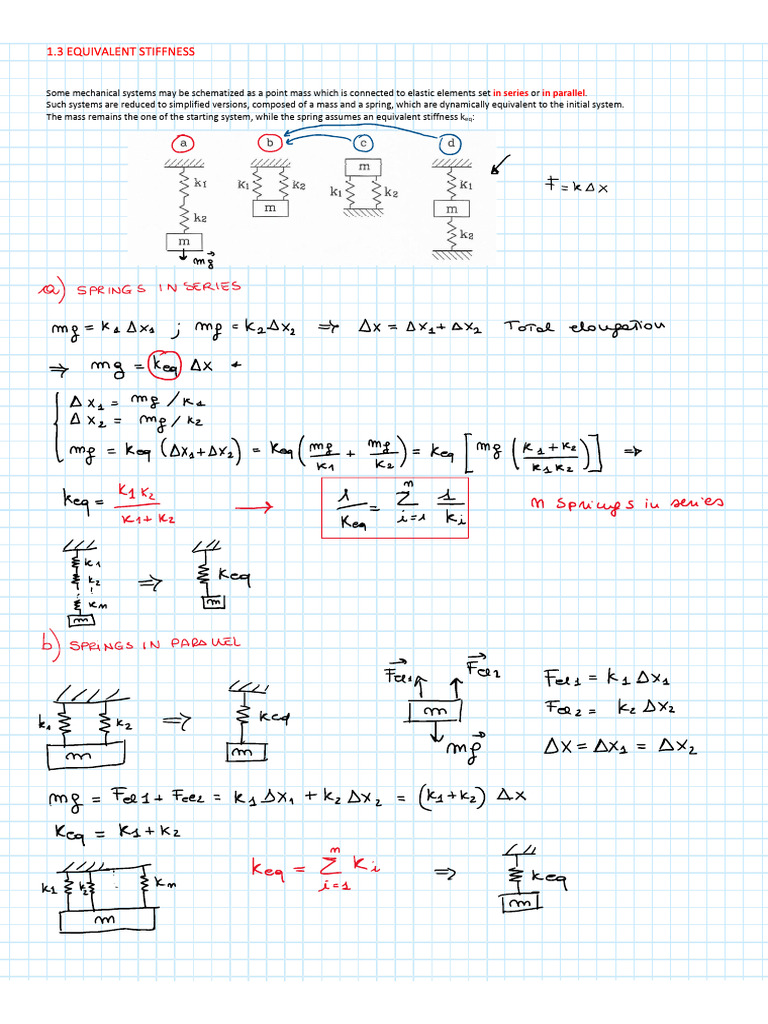 1.3 EQUIVALENT STIFFNESS
Some mechanical systems may be schematized as a point mass which is connected to elastic elements set in series or in parallel.
Such systems are reduced to simplified versions, composed of a mass and a spring, which are dynamically equivalent to the initial system.
The mass remains the one of the starting system, while the spring assumes an equivalent stiffness keq:
a b c d
k1 k2 m mg⃗
k1 k2 m
m k1 k2
k1 m k2
F = k Δx
a) SPRINGS IN SERIES
mg = k1 Δx1 ; mg = k2 Δx2 ⇒ Δx = Δx1 + Δx2 Total elongation
⇒ mg = keq Δx
Δx1 = mg / k1
Δx2 = mg / k2
mg = keq (Δx1 + Δx2) = keq (mg/k1 + mg/k2) = keq [mg (k1 + k2 / k1 k2)] ⇒
keq = k1 k2 / k1 + k2 → 1/keq = Σ i=1 n 1/ki n springs in series
k1
k2
kn
m
⇒ keq m
b) SPRINGS IN PARALLEL
k1 k2 m ⇒ keq m
F⃗el1 F⃗el2 m mg⃗
Fel1 = k1 Δx1
Fel2 = k2 Δx2
Δx = Δx1 = Δx2
mg = Fel1 + Fel2 = k1 Δx1 + k2 Δx2 = (k1 + k2) Δx
keq = k1 + k2
k1 k2 kn m
keq = Σ i=1 n ki ⇒ keq m